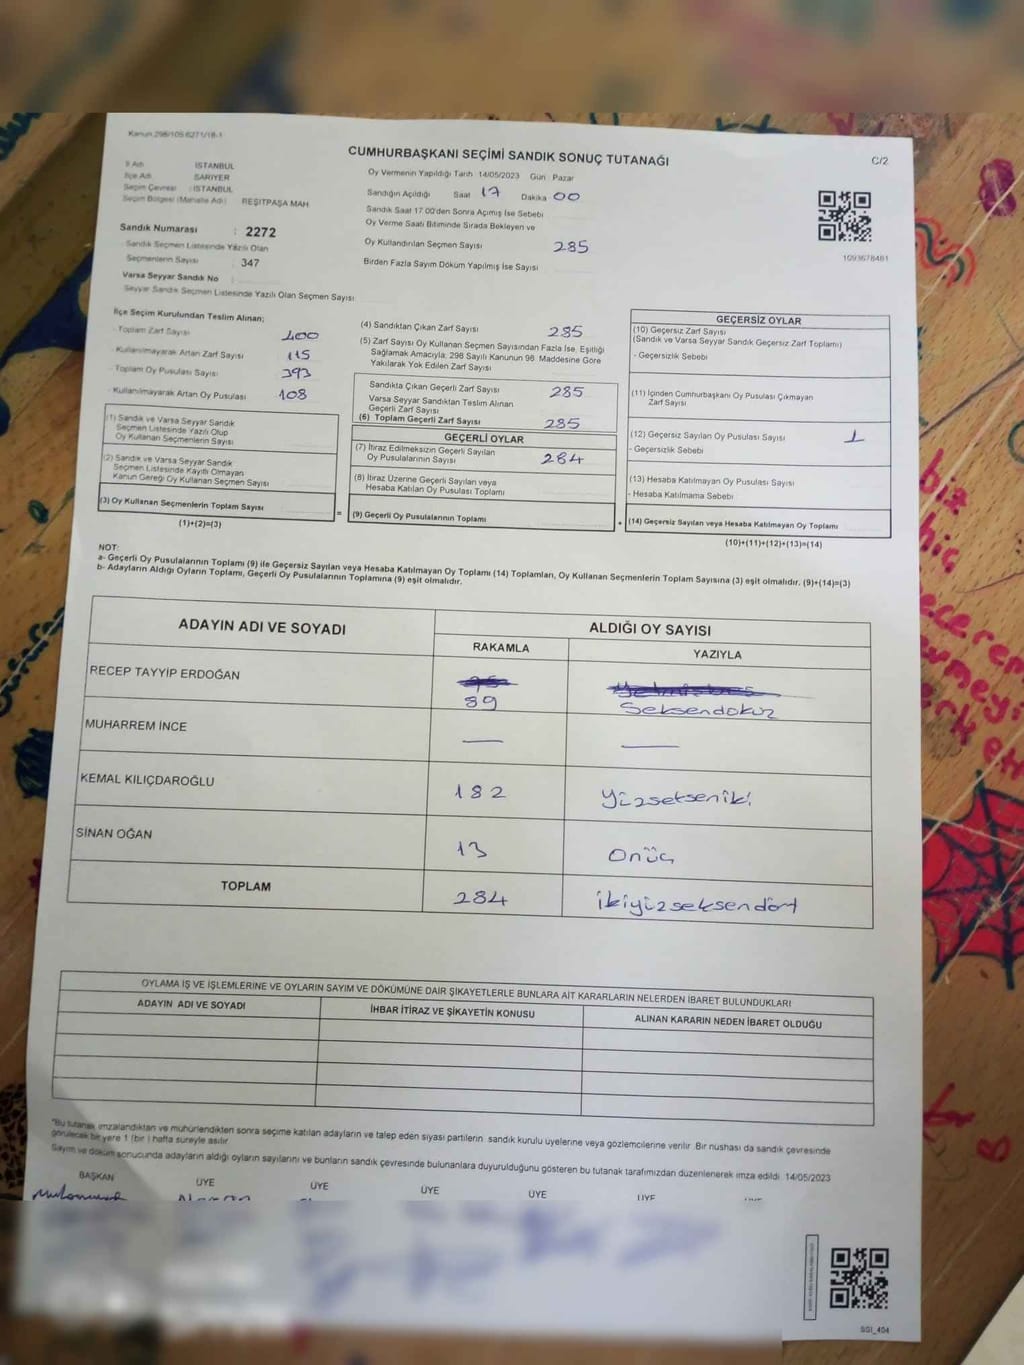 Kanun 298/105 6271/18-1
CUMHURBAŞKANI SEÇİMİ SANDIK SONUÇ TUTANAĞI
C/2
İl Adı İSTANBUL
İlçe Adı SARIYER
Seçim Çevresi : İSTANBUL
Seçim Bölgesi (Mahalle Adı) REŞİTPAŞA MAH
Sandık Numarası : 2272
Sandık Seçmen Listesinde Yazılı Olan
Seçmenlerin Sayısı : 347
Varsa Seyyar Sandık No :
Seyyar Sandık Seçmen Listesinde Yazılı Olan Seçmen Sayısı
Oy Vermenin Yapıldığı Tarih 14/05/2023 Gün Pazar
Sandığın Açıldığı Saat 17 Dakika 00
Sandık Saat 17.00'den Sonra Açımış İse Sebebi
Oy Verme Saati Bitiminde Sırada Bekleyen ve
Oy Kullandırılan Seçmen Sayısı 285
Birden Fazla Sayım Döküm Yapılmış İse Sayısı
1093678461
İlçe Seçim Kurulundan Teslim Alınan;
- Toplam Zarf Sayısı 400
- Kullanılmayarak Artan Zarf Sayısı 115
- Toplam Oy Pusulası Sayısı 393
- Kullanılmayarak Artan Oy Pusulası 108
(1) Sandık ve Varsa Seyyar Sandık
Seçmen Listesinde Yazılı Olup
Oy Kullanan Seçmenlerin Sayısı
(2) Sandık ve Varsa Seyyar Sandık
Seçmen Listesinde Kayıtlı Olmayan
Kanun Gereği Oy Kullanan Seçmen Sayısı
(3) Oy Kullanan Seçmenlerin Toplam Sayısı
(1)+(2)=(3)
(4) Sandıktan Çıkan Zarf Sayısı 285
(5) Zarf Sayısı Oy Kullanan Seçmen Sayısından Fazla İse, Eşitliği
Sağlamak Amacıyla; 298 Sayılı Kanunun 98. Maddesine Göre
Yakılarak Yok Edilen Zarf Sayısı
Sandıkta Çıkan Geçerli Zarf Sayısı 285
Varsa Seyyar Sandıktan Teslim Alınan
Geçerli Zarf Sayısı
(6) Toplam Geçerli Zarf Sayısı 285
GEÇERLİ OYLAR
(7) İtiraz Edilmeksizin Geçerli Sayılan
Oy Pusulalarının Sayısı 284
(8) İtiraz Üzerine Geçerli Sayılan veya
Hesaba Katılan Oy Pusulası Toplamı
= (9) Geçerli Oy Pusulalarının Toplamı
GEÇERSİZ OYLAR
(10) Geçersiz Zarf Sayısı
(Sandık ve Varsa Seyyar Sandık Geçersiz Zarf Toplamı)
- Geçersizlik Sebebi
(11) İçinden Cumhurbaşkanı Oy Pusulası Çıkmayan
Zarf Sayısı
(12) Geçersiz Sayılan Oy Pusulası Sayısı 1
- Geçersizlik Sebebi
(13) Hesaba Katılmayan Oy Pusulası Sayısı
- Hesaba Katılmama Sebebi
+ (14) Geçersiz Sayılan veya Hesaba Katılmayan Oy Toplamı
(10)+(11)+(12)+(13)=(14)
NOT:
a- Geçerli Oy Pusulalarının Toplamı (9) ile Geçersiz Sayılan veya Hesaba Katılmayan Oy Toplamı (14) Toplamları, Oy Kullanan Seçmenlerin Toplam Sayısına (3) eşit olmalıdır. (9)+(14)=(3)
b- Adayların Aldığı Oyların Toplamı, Geçerli Oy Pusulalarının Toplamına (9) eşit olmalıdır.
ADAYIN ADI VE SOYADI ALDIĞI OY SAYISI
RAKAMLA YAZIYLA
RECEP TAYYİP ERDOĞAN 89 Seksendokuz
MUHARREM İNCE — —
KEMAL KILIÇDAROĞLU 182 Yüzsekseniki
SİNAN OĞAN 13 Onüç
TOPLAM 284 ikiyüzseksendört
OYLAMA İŞ VE İŞLEMLERİNE VE OYLARIN SAYIM VE DÖKÜMÜNE DAİR ŞİKAYETLERLE BUNLARA AİT KARARLARIN NELERDEN İBARET BULUNDUKLARI
ADAYIN ADI VE SOYADI İHBAR İTİRAZ VE ŞİKAYETİN KONUSU ALINAN KARARIN NEDEN İBARET OLDUĞU
"Bu tutanak imzalandıktan ve mühürlendikten sonra seçime katılan adayların ve talep eden siyasi partilerin sandık kurulu üyelerine veya gözlemcilerine verilir. Bir nushası da sandık çevresinde
görülecek bir yere 1 (bir ) hafta süreyle asılır
Sayım ve döküm sonucunda adayların aldığı oyların sayılarını ve bunların sandık çevresinde bulunanlara duyurulduğunu gösteren bu tutanak tarafımızdan düzenlenerek imza edildi. 14/05/2023
BAŞKAN ÜYE ÜYE ÜYE ÜYE ÜYE
SGI_404
biz
hiç